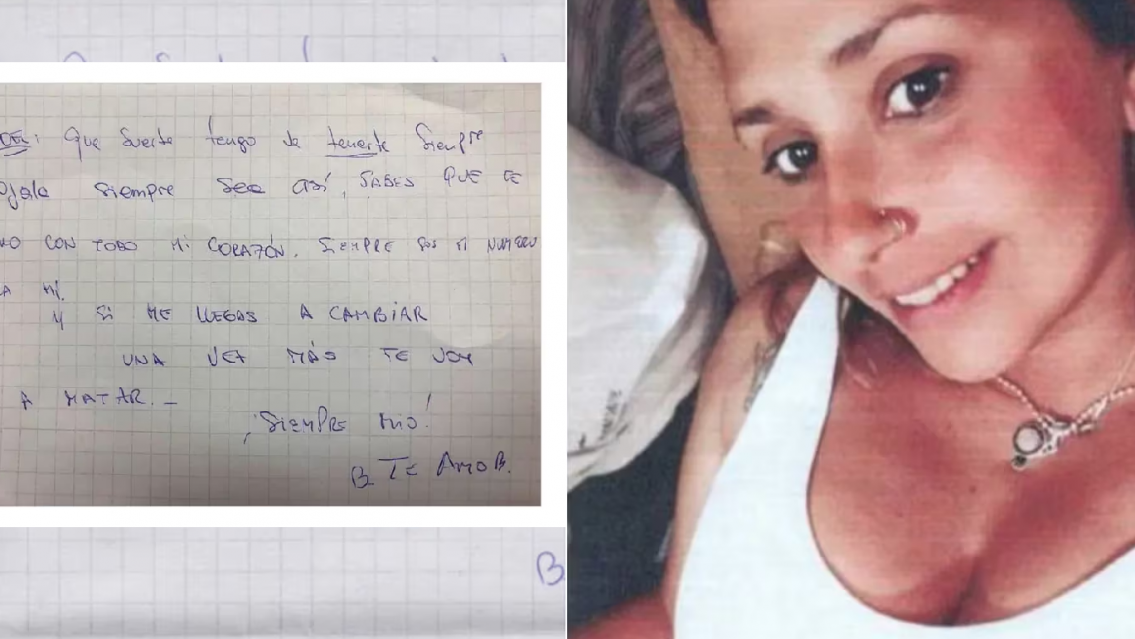 DEL: Que suerte tengo de tenerte siempre
Ojala siempre sea así, SABES QUE TE
MO CON TODO MI CORAZÓN. SIEMPRE SOS MI NUMERO
A MI.
Y SI ME LLEGAS A CAMBIAR
UNA VEZ MÁS TE VOY
A MATAR.-
¡SIEMPRE MIO!
B. TE AMO B.
B